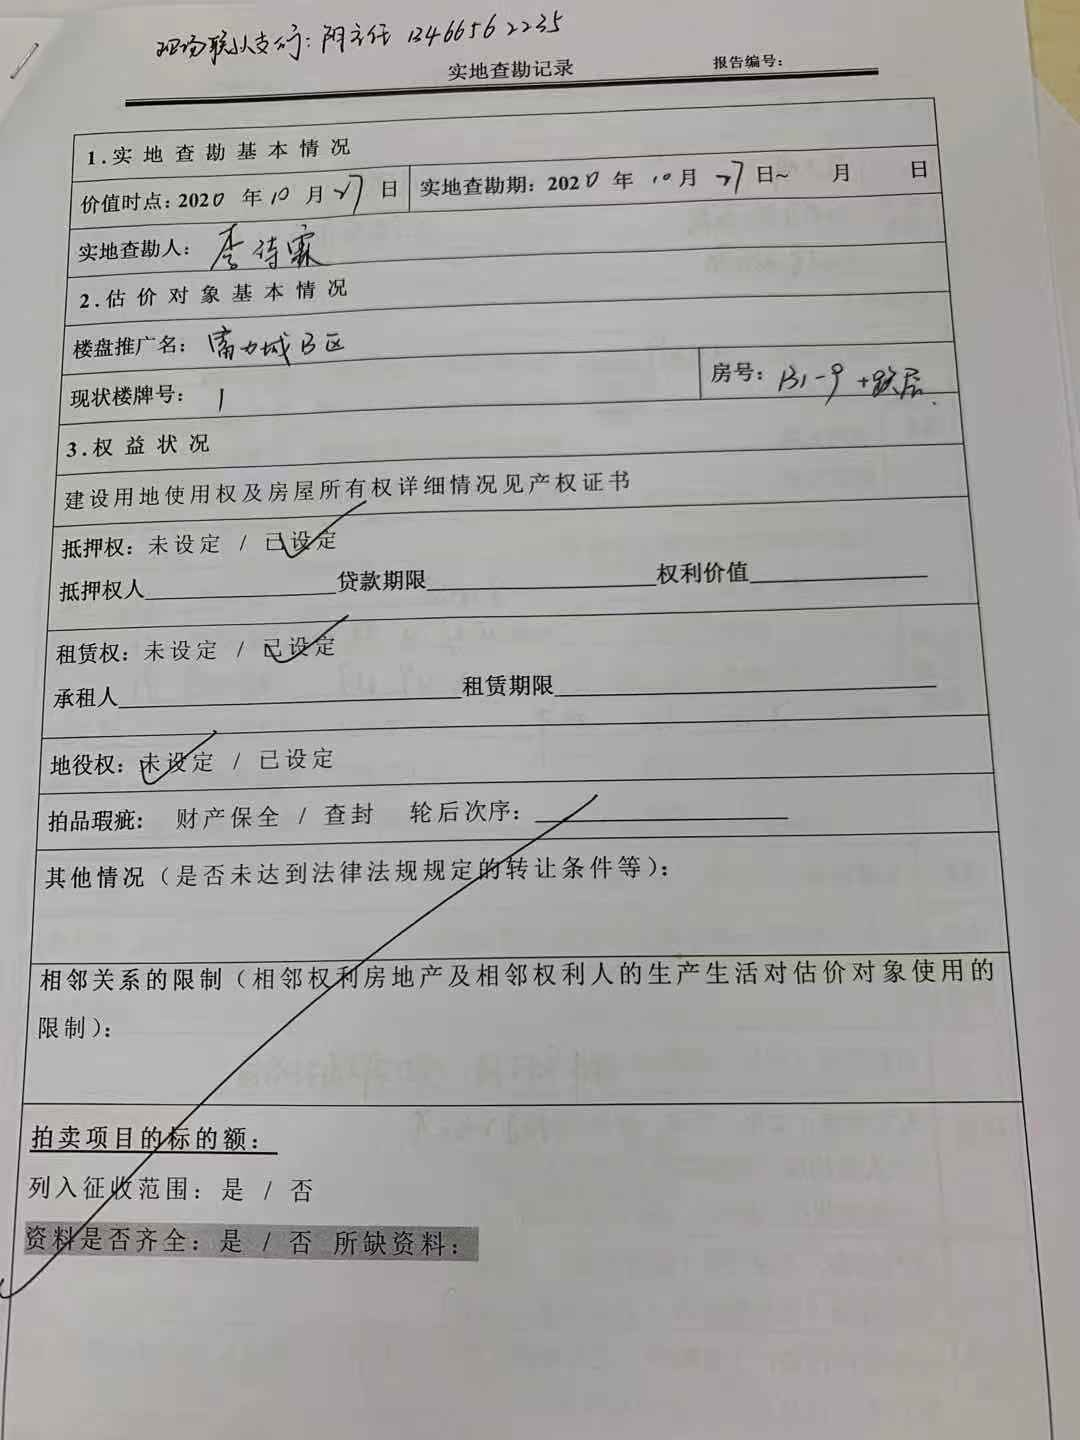 现场联队支行: 阴主任 13466562235
实地查勘记录 报告编号:
1.实地查勘基本情况
价值时点: 2020 年 10 月 27 日 实地查勘期: 2020 年 10 月 27 日~ 月 日
实地查勘人: 李诗霖
2.估价对象基本情况
楼盘推广名: 富力城B区
现状楼牌号: 1 房号: B1-9 +跃层
3.权益状况
建设用地使用权及房屋所有权详细情况见产权证书
抵押权: 未设定 / 已设定
抵押权人 贷款期限 权利价值
租赁权: 未设定 / 已设定
承租人 租赁期限
地役权: 未设定 / 已设定
拍品瑕疵: 财产保全 / 查封 轮后次序:
其他情况（是否未达到法律法规规定的转让条件等）:
相邻关系的限制（相邻权利房地产及相邻权利人的生产生活对估价对象使用的
限制）:
拍卖项目的标的额:
列入征收范围: 是 / 否
资料是否齐全: 是 / 否 所缺资料: